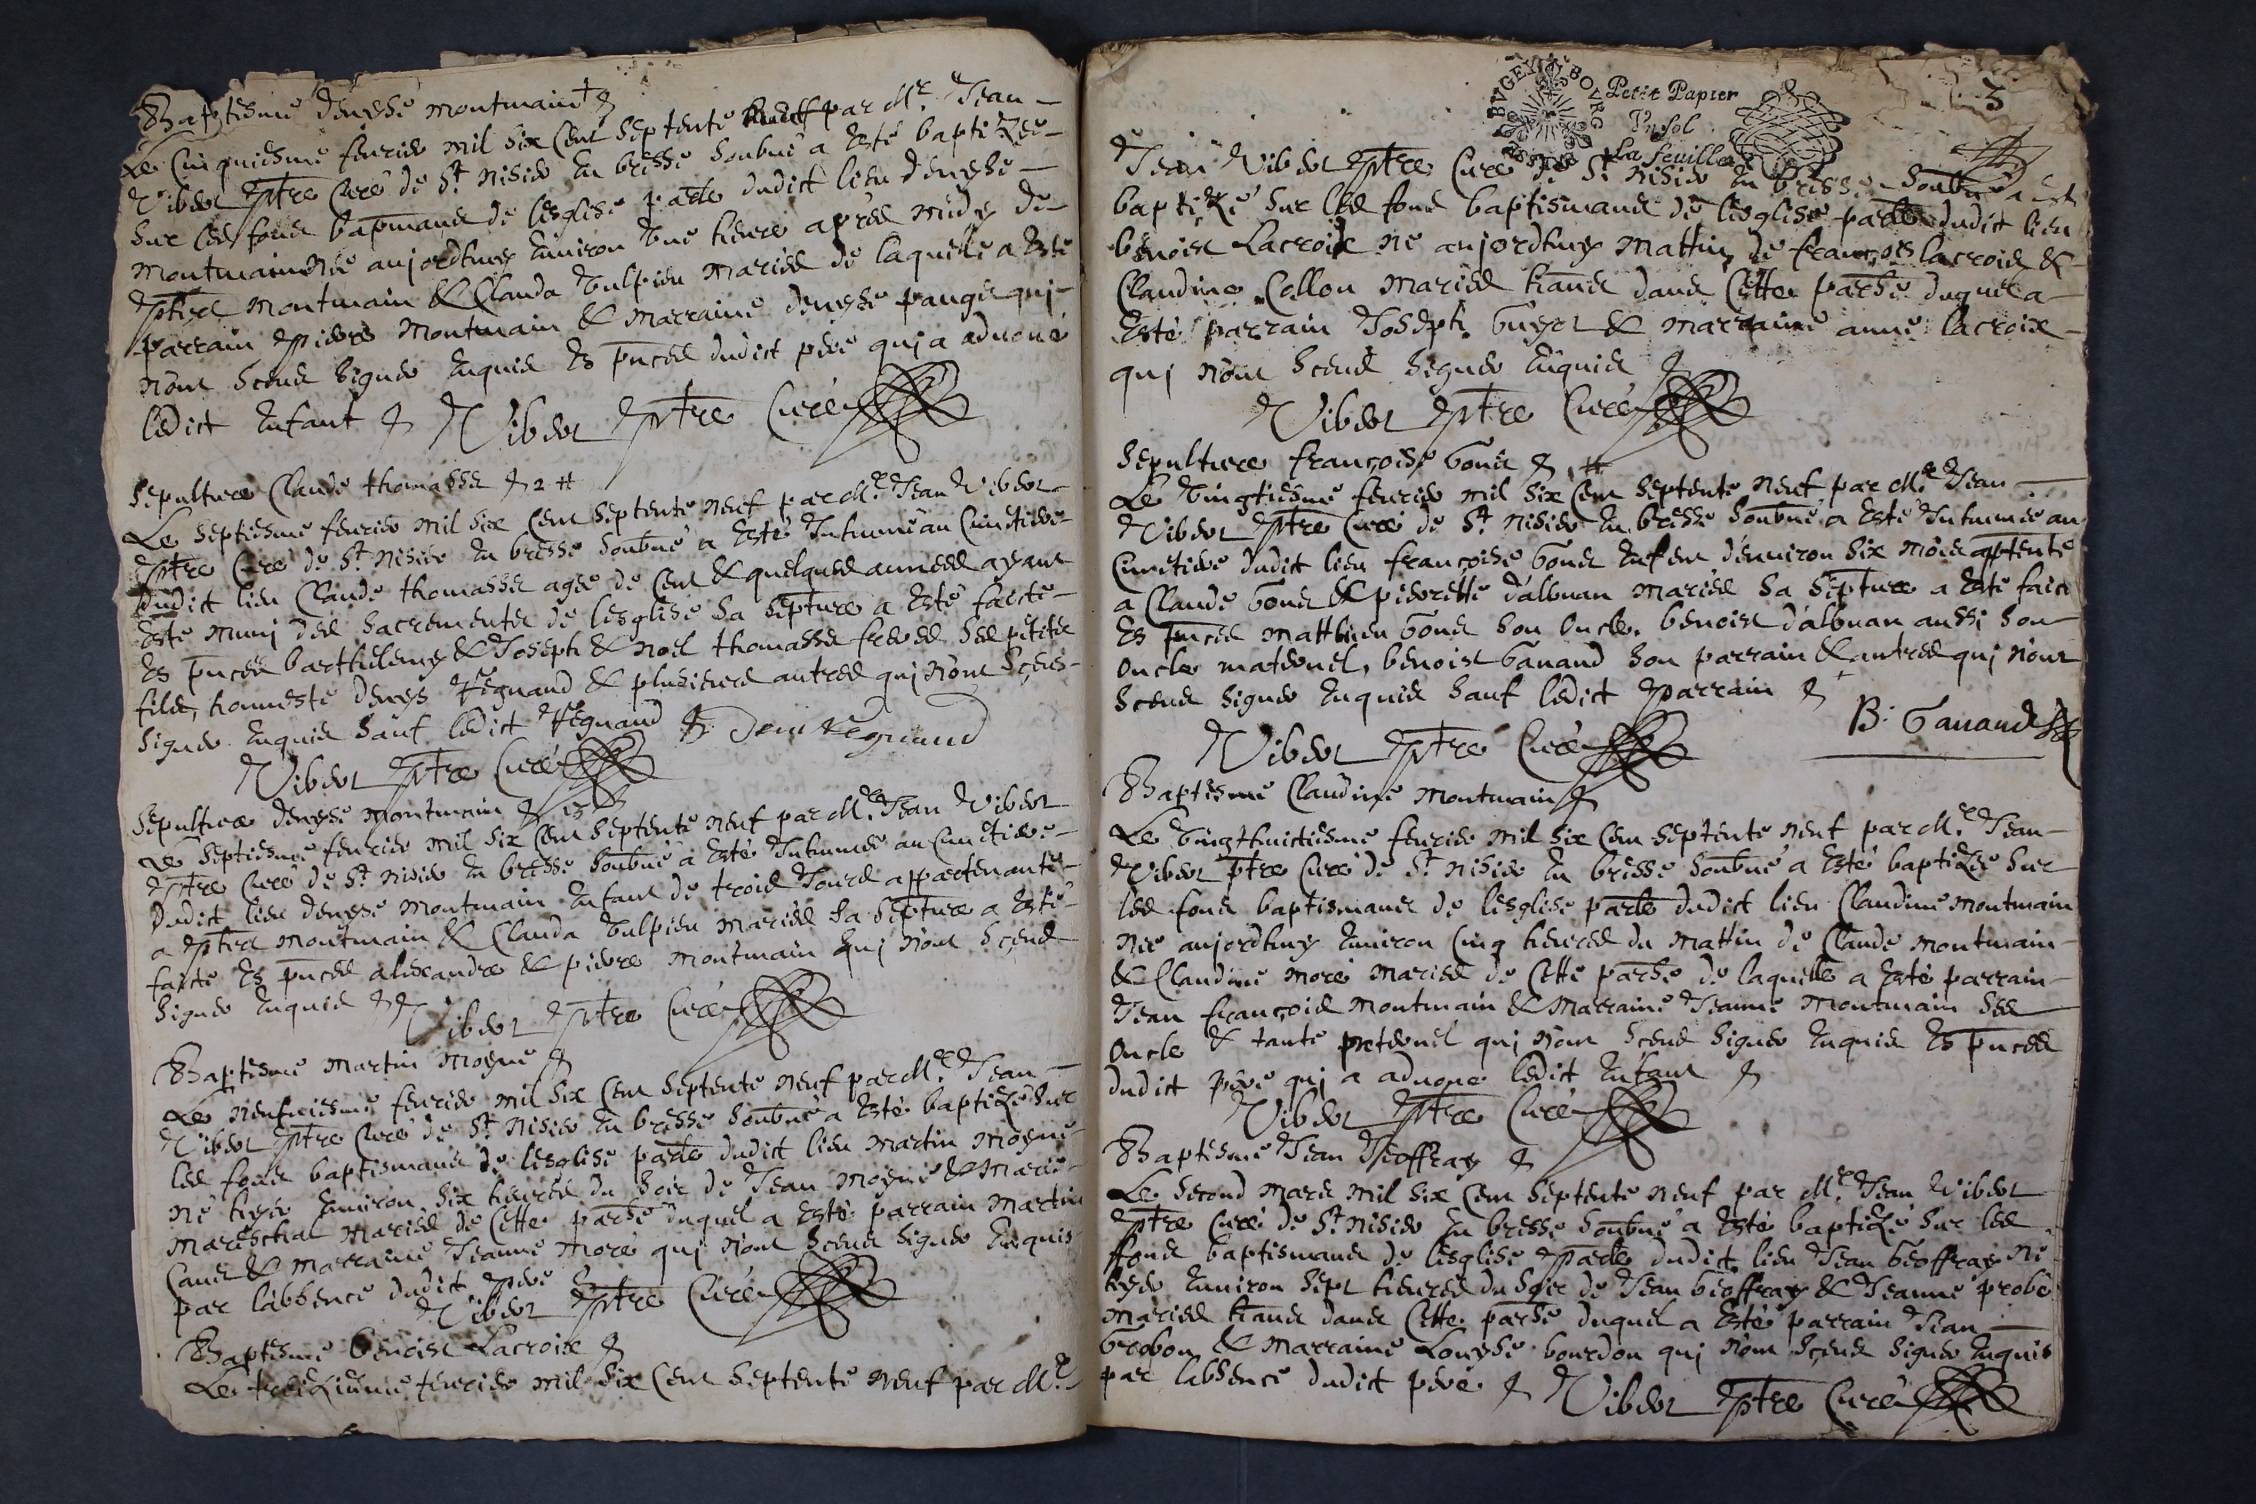 Baptesme denyse montmain
Le Cinquiesme feurier mil six cent septente neuf par Mre Jean
Vibert ptre Curé de St nisier en bresse soubné a esté baptizée
sur les fons bapmaux de lesglise parlle dudict lieu denyse
montmain née aujordhuy enuiron une heure apres midy de
montmain & Clauda Vulpieu mariés de laquelle a esté
parrain pierre montmain & marraine denyse pauget quj
nont sceus signer enquis Es pnces dudict pere quj a aduoué
ledict enfant Vibert ptre Curé
Sepulture Claude thomasset 2
Le septiesme feurier mil six cent septente neuf par Mre Jean Vibert
ptre Curé de St nisier en bresse soubné a esté Inhumé au Cimetiere
dudict lieu Claude thomasset agé de cent & quelques années ayant
esté munj des sacrementes de lesglise sa septure a esté faicte
Es pnces barthelemy & Joseph & noel thomasset freres ses petites
fils, honneste denys Regnaud & plusieurs autres quj nont sceus
signer enquis sauf ledict Regnaud Denis Regnaud
Vibert ptre Curé
Sepulture denyse montmain
Le septiesme feurier mil six cent septente neuf par Mre Jean Vibert
ptre Curé de St nisier en bresse soubné a esté Inhumée au Cimetiere
dudict lieu denyse montmain enfant de trois Jours appartenante
a montmain & Clauda Vulpieu mariés sa septure a esté
faicte Es pnces alexandre & pierre montmain quj nont sceus
signer enquis Vibert ptre Curé
Baptesme martin moyne
Le neufuiesme feurier mil six cent septente neuf par Mre Jean
Vibert ptre Curé de St nisier en bresse soubné a esté baptizé sur
les fons baptismaux de lesglise parlle dudict lieu martin moyne
né hyer enuiron six heures du soir de Jean moyne & Marie
mareschal mariés de Cette parse duquel a esté parrain martin
Canet & marraine Jeanne moré quj nont sceus signer enquis
par labsence dudict pere
Vibert ptre Curé
Baptesme benoist Lacroix
Le treiziesme feurier mil six cent septente neuf par Mre
BVGEY BOVRG
Petit Papier
Vn sol
La feuille
3
Jean Vibert ptre Curé de St nisier en bresse soubné a esté
baptizé sur les fons baptismaux de lesglise parlle dudict lieu
benoist Lacroix né aujordhuy mattin de françois lacroix &
Claudine Collon mariés hans dans Cette parse duquel a
esté parrain Joseph guyot & marraine anne lacroix
quj nont sceus signer enquis
Vibert ptre Curé
Sepulture françoise gonet
Le Vingtiesme feurier mil six cent septente neuf par Mre Jean
Vibert ptre Curé de St nisier en bresse soubné a esté Inhumée au
Cimetiere dudict lieu françoise gonet enfent denuiron six mois apptente
a Claude gonet & pierrette dalbuan mariés sa septure a esté faict
Es pnces matthieu gonet son Oncle, benoist dalbuan aussi son
oncle maternel, benoist ganand son parrain & autres quj nont
sceus signer enquis sauf ledict parrain
B. Ganand
Vibert ptre Curé
Baptesme Claudine montmain
Le Vingthuictiesme feurier mil six cent septente neuf par Mre Jean
Vibert ptre Curé de St nisier en bresse soubné a esté baptizée sur
les fons baptismaux de lesglise parlle dudict lieu Claudine montmain
née aujordhuy enuiron Cinq heures du mattin de Claude montmain
& Claudine moré mariés de Cette parse de laquelle a esté parrain
Jean françois montmain & Marraine Jeanne montmain ses
Oncle & tante paternel quj nont sceus signer enquis Es pnces
dudict pere quj a aduoué ledict enfant
Vibert ptre Curé
Baptesme Jean Geoffray
Le second mars mil six cent septente neuf par Mre Jean Vibert
ptre Curé de St nisier en bresse soubné a esté baptizé sur les
fons baptismaux de lesglise parlle dudict lieu Jean geoffray né
hyer enuiron sept heures du soir de Jean geoffray & Jeanne probé
mariés hans dans Cette parse duquel a esté parrain Jean
grobon & Marraine Louyse bourdon quj nont sceus signer enquis
par labsence dudict pere Vibert ptre Curé